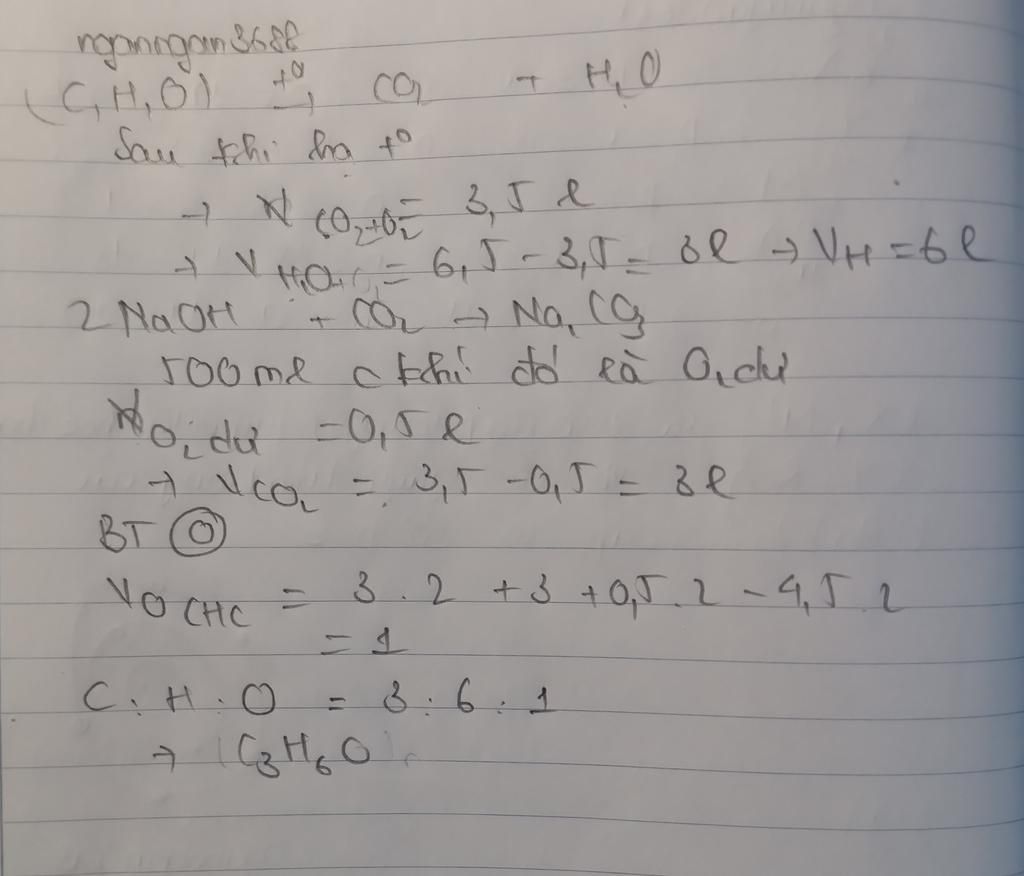 nganngan3688
(C, H, O) t° → CO2 + H2O
Sau khi hạ t°
→ V CO2+O2 = 3,5 l
→ V H2O = 6,5 - 3,5 = 3l → VH = 6l
2 NaOH + CO2 → Na2CO3
500ml c khí đó là O2 dư
V O2 dư = 0,5 l
→ V CO2 = 3,5 - 0,5 = 3l
BT O
V O CHC = 3 . 2 + 3 + 0,5 . 2 - 4,5 . 2
= 1
C : H : O = 3 : 6 : 1
→ (C3H6O)